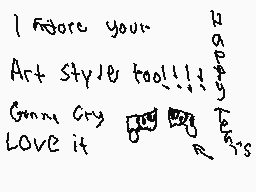 I Adore your
Art style too!!!!
Gonna Cry
LOVE it
Happy Tears